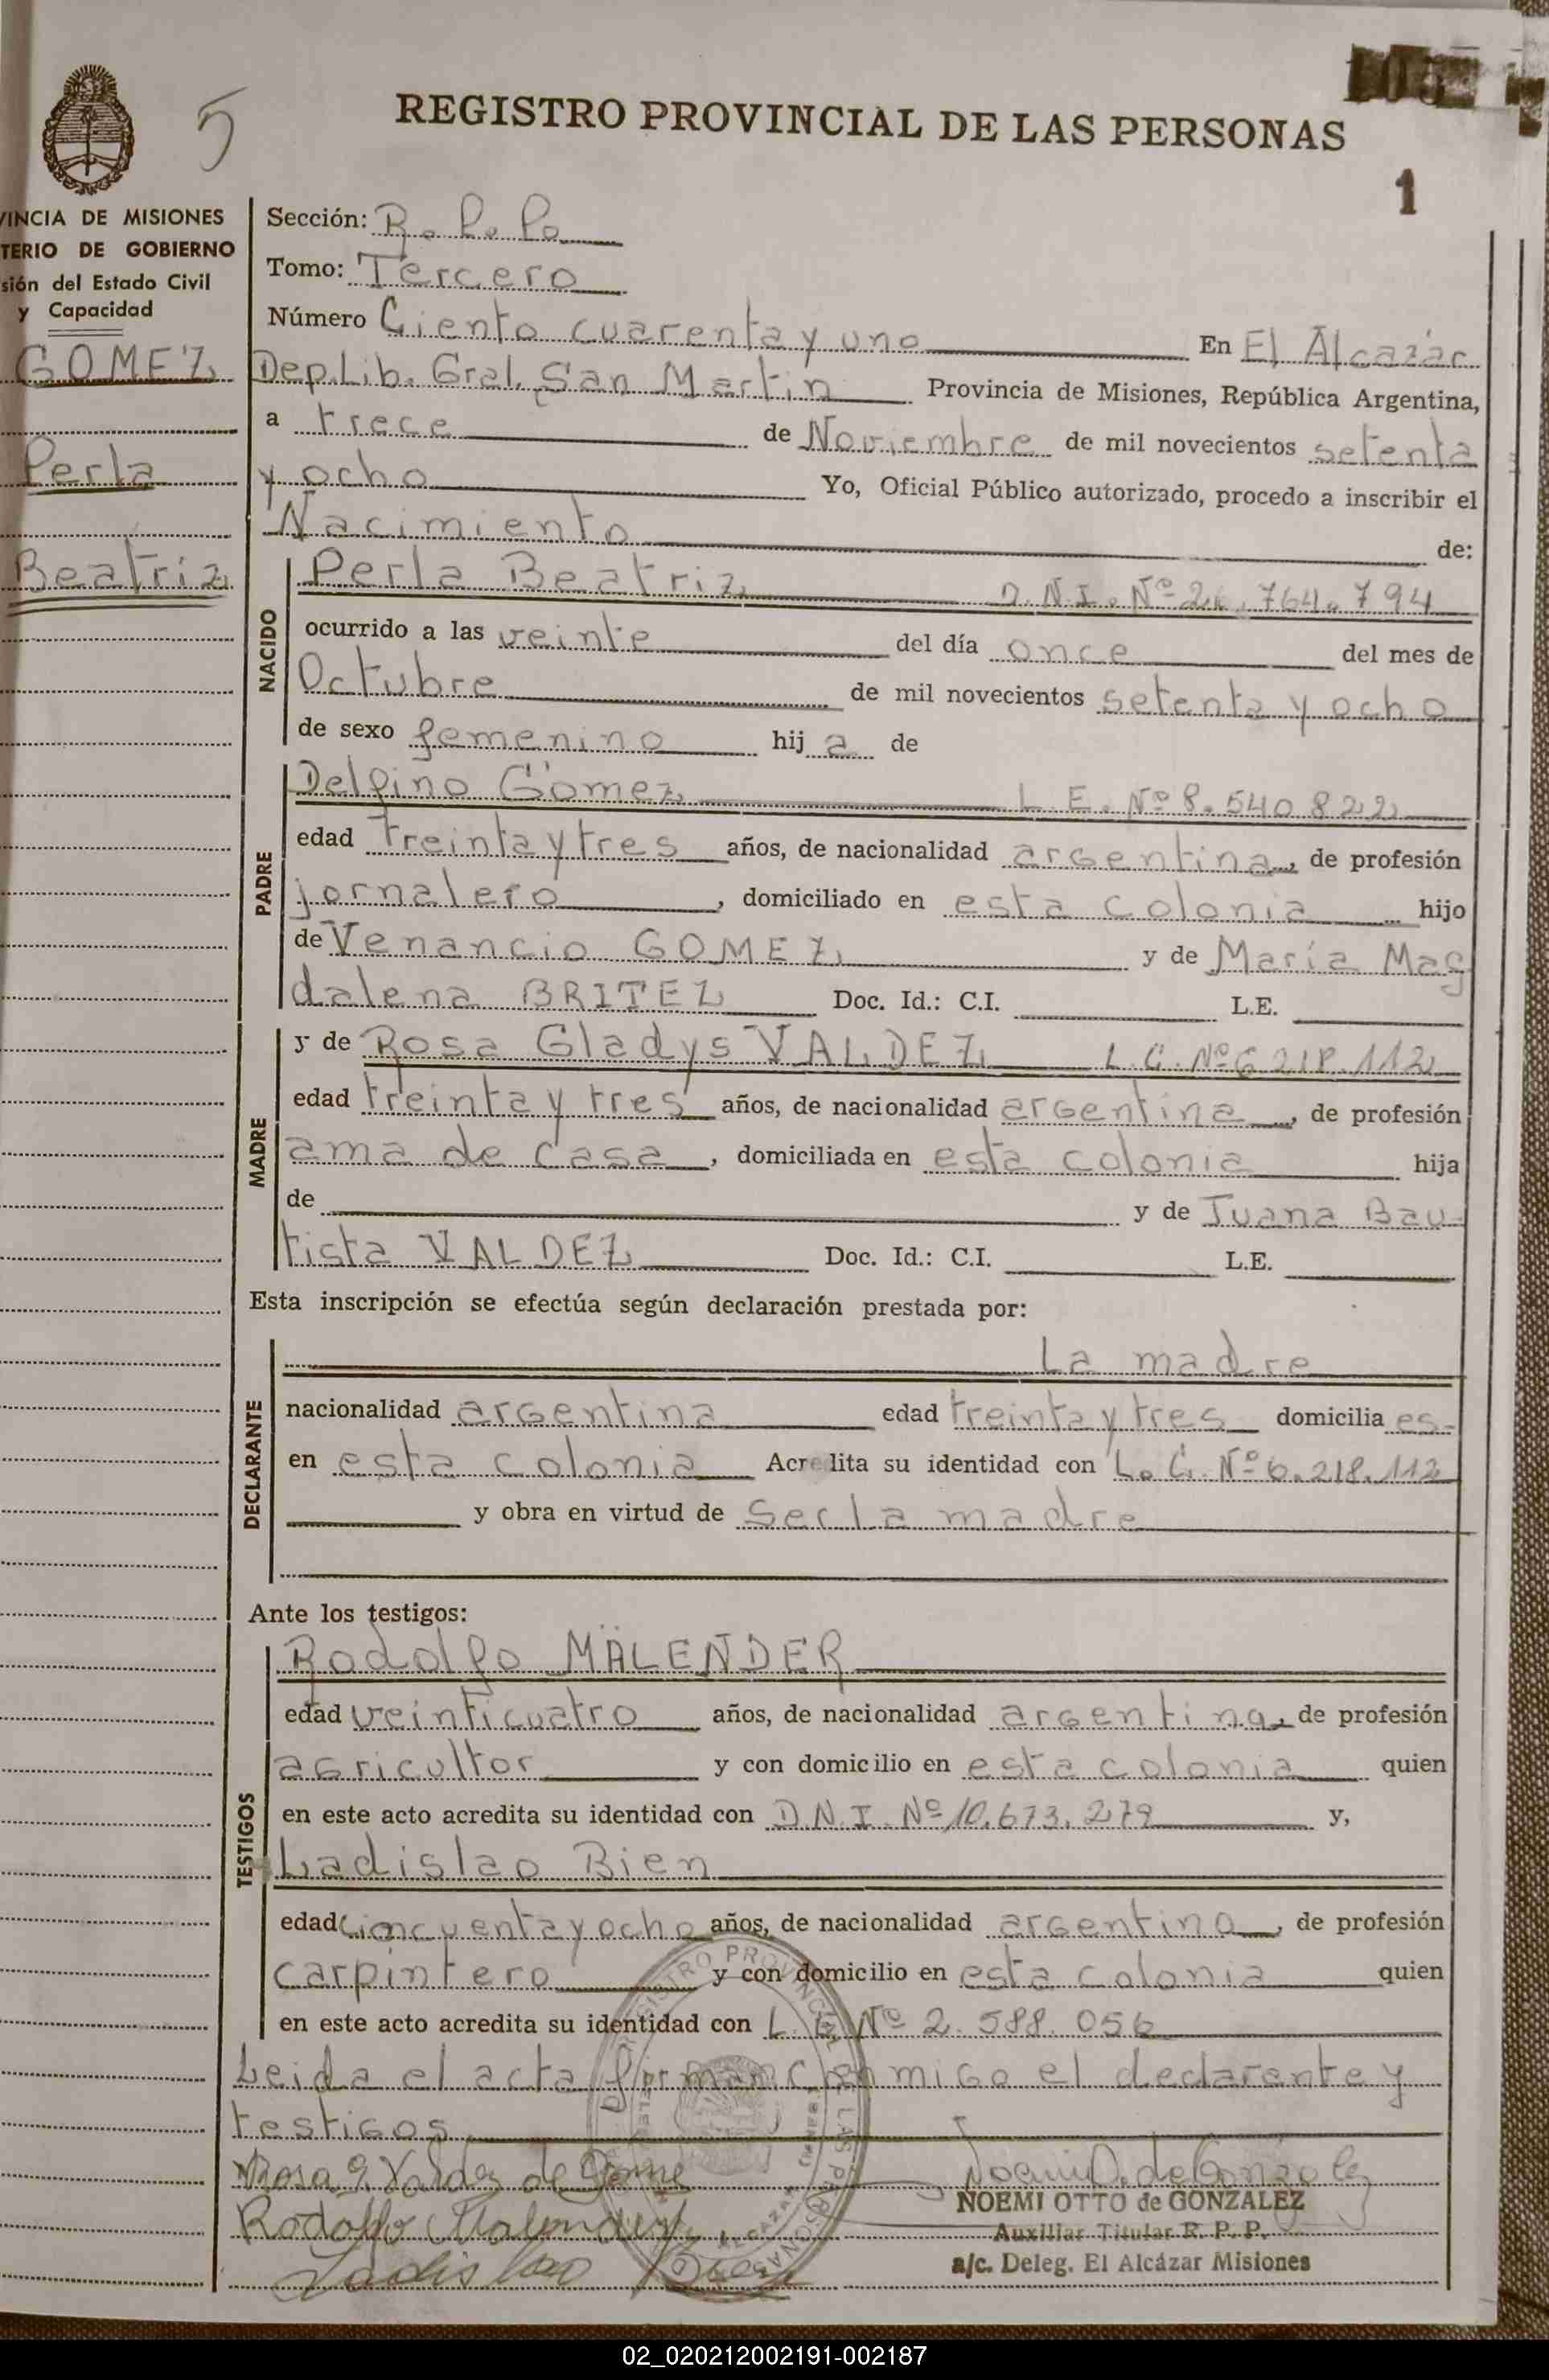 5
REGISTRO PROVINCIAL DE LAS PERSONAS
1
VINCIA DE MISIONES
TERIO DE GOBIERNO
sión del Estado Civil
y Capacidad
GOMEZ
Perla
Beatriz
Sección: R. P. P.
Tomo: Tercero
Número Ciento cuarenta y uno En El Alcazár
Dep. Lib. Gral. San Martin Provincia de Misiones, República Argentina,
a trece de Noviembre de mil novecientos setenta
y ocho Yo, Oficial Público autorizado, procedo a inscribir el
Nacimiento de:
NACIDO
Perla Beatriz D.N.I. Nº 764.794
ocurrido a las veinte del día once del mes de
Octubre de mil novecientos setenta y ocho
de sexo femenino hij a de
PADRE
Delfino Gómez L.E. Nº 8.540.822
edad treinta y tres años, de nacionalidad argentina, de profesión
jornalero, domiciliado en esta colonia hijo
de Venancio GOMEZ y de María Mag
dalena BRITEZ Doc. Id.: C.I. L.E.
MADRE
y de Rosa Gladys VALDEZ L.C. Nº 6.218.112
edad treinta y tres años, de nacionalidad argentina, de profesión
ama de casa, domiciliada en esta colonia hija
de y de Juana Bau-
tista VALDEZ Doc. Id.: C.I. L.E.
Esta inscripción se efectúa según declaración prestada por:
DECLARANTE
La madre
nacionalidad argentina edad treinta y tres domicilia es-
en esta colonia Acredita su identidad con L.C. Nº 6.218.112
y obra en virtud de Ser la madre
Ante los testigos:
TESTIGOS
Rodolfo MÄLENDER
edad veinticuatro años, de nacionalidad argentina, de profesión
agricultor y con domicilio en esta colonia quien
en este acto acredita su identidad con D.N.I. Nº 10.673.279 y,
Ladislao Bien
edad cincuenta y ocho años, de nacionalidad argentino, de profesión
carpintero y con domicilio en esta colonia quien
en este acto acredita su identidad con L.E. Nº 2.588.056
Leida el acta firman conmigo el declarante y
testigos
Rosa G. Valdez de Gome
NOEMI OTTO de GONZALEZ
Rodolfo Malender
Auxiliar Titular R. P. P.
Ladislao Bien
a/c. Deleg. El Alcázar Misiones
02_020212002191-002187